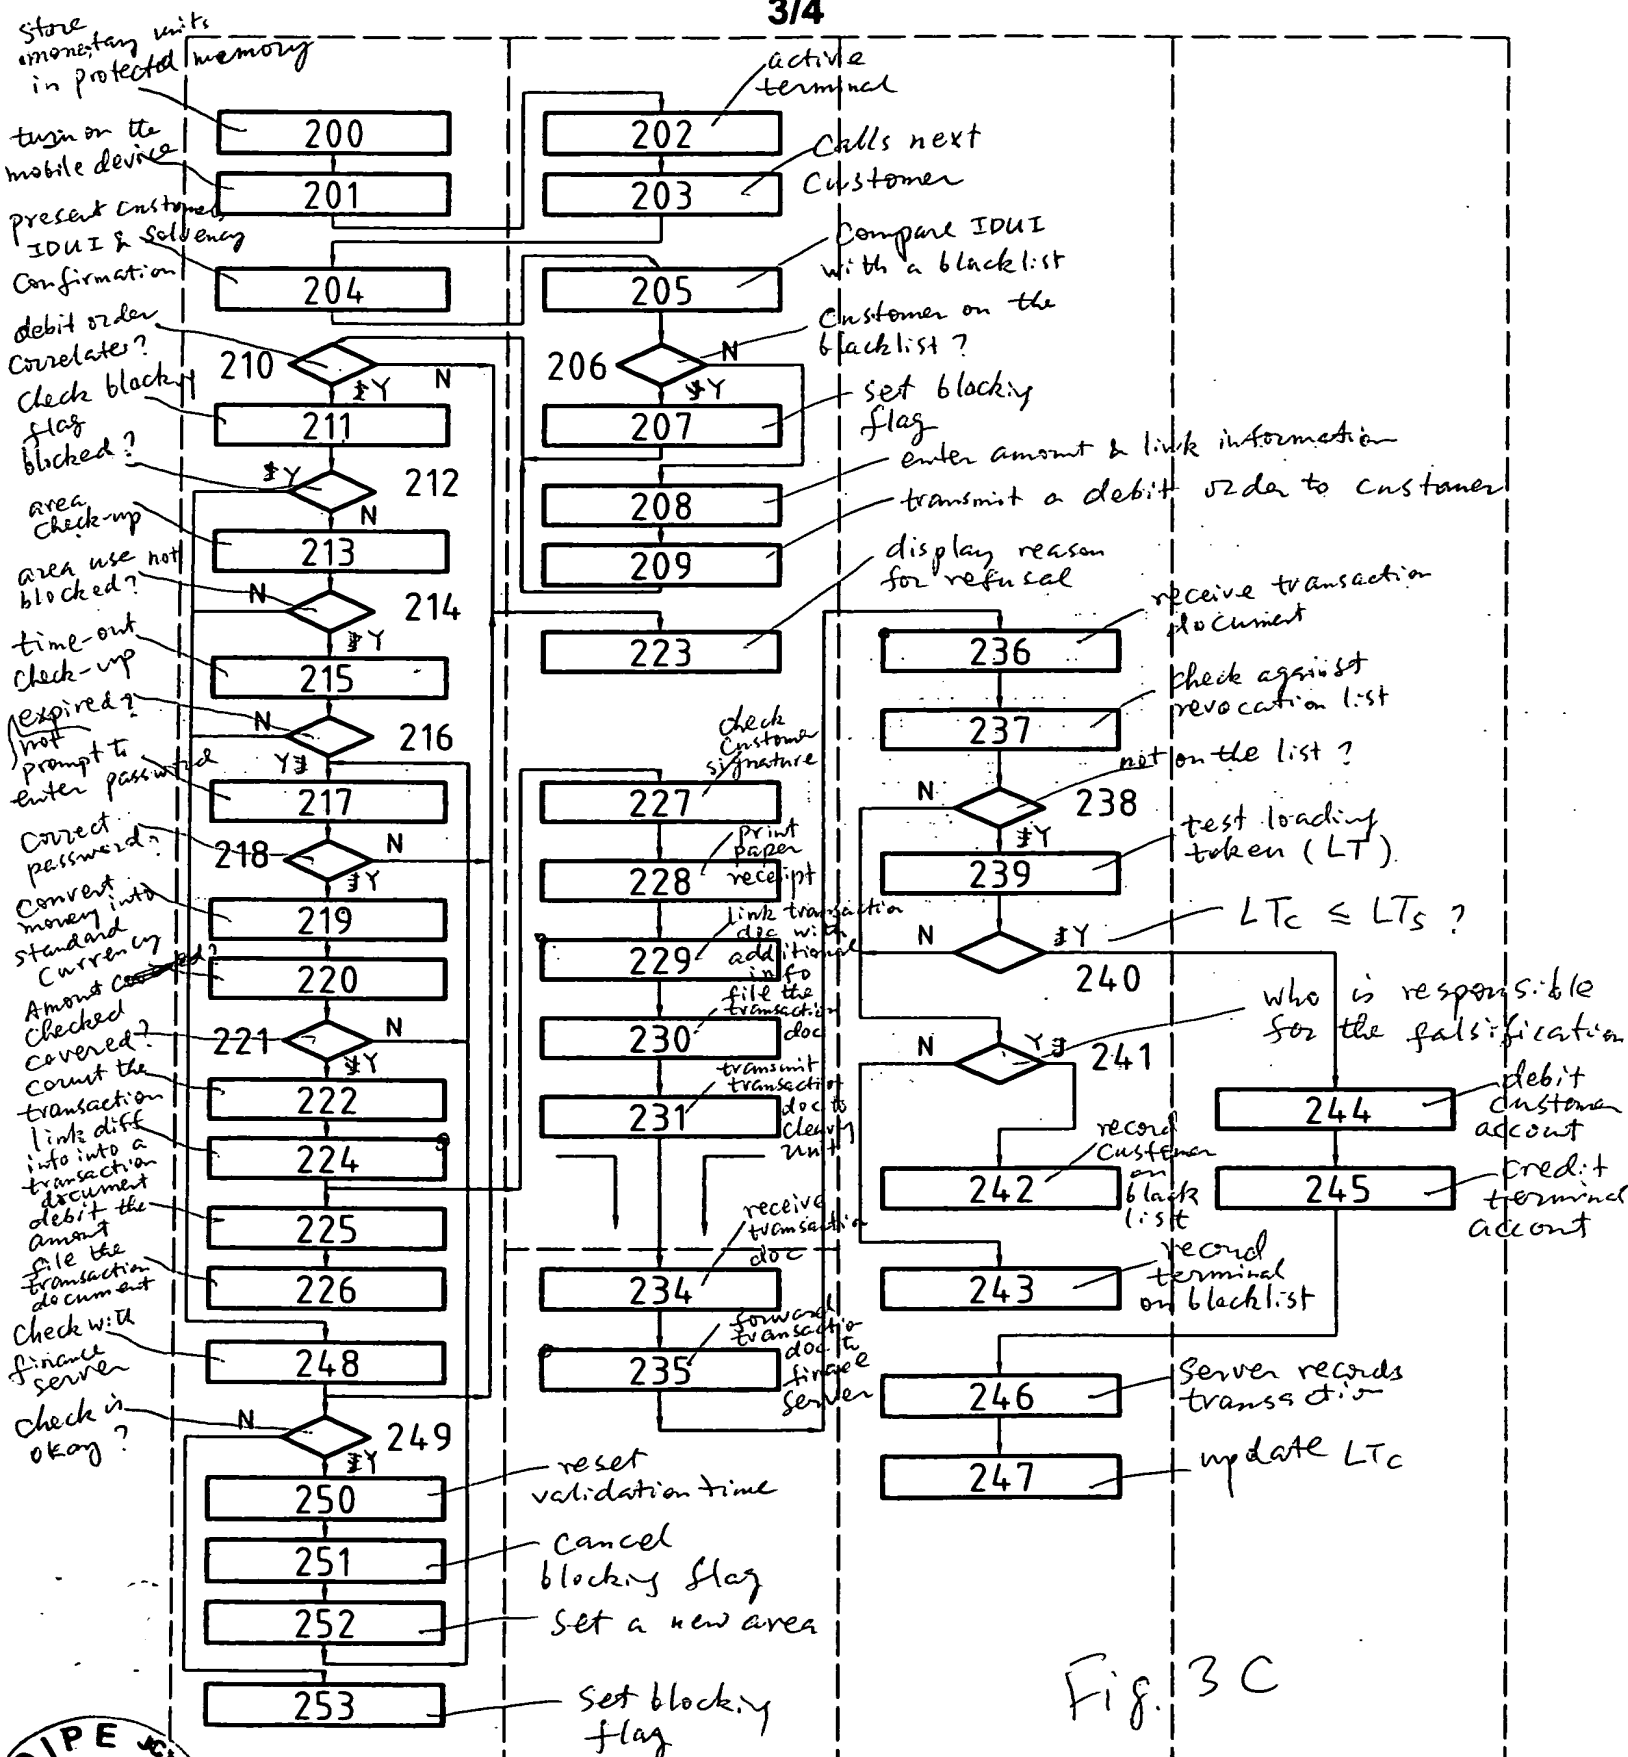 3/4
store
monetary units
in protected memory
200
turn on the
mobile device
201
present customer
IDUI & Solvency
Confirmation
204
debit order
correlates?
210
N
Y
check blocking
flag
211
blocked?
Y
212
N
area
check-up
213
area use not
blocked?
N
214
Y
time-out
check-up
215
expired?
not
N
216
Y
prompt to
enter password
217
Correct
password?
218
N
Y
convert
money into
standard
currency
219
220
Amount
checked
covered?
221
N
Y
count the
transaction
222
link diff
info into a
transaction
document
224
debit the
amount
225
file the
transaction
document
226
check with
finance
server
248
check is
okay?
N
249
Y
250
reset
validation time
251
cancel
blocking flag
252
set a new area
253
set blocking
flag
active
terminal
202
Calls next
Customer
203
Compare IDUI
with a blacklist
205
Customer on the
blacklist?
206
N
Y
207
set blocking
flag
208
enter amount & link information
209
transmit a debit order to customer
display reason
for refusal
223
check
customer
signature
227
print
paper
receipt
228
link transaction
doc with
additional
info
229
file the
transaction
doc
230
transmit
transaction
doc to
clearing
unit
231
receive
transaction
doc
234
forward
transaction
doc to
finance
server
235
receive transaction
document
236
check against
revocation list
237
not on the list?
N
238
Y
test loading
token (LT)
239
LTc ≤ LTs ?
N
Y
240
who is responsible
for the falsification
N
Y
241
record
customer
on
black
list
242
record
terminal
on blacklist
243
debit
customer
account
244
credit
terminal
account
245
Server records
transaction
246
update LTc
247
Fig. 3C